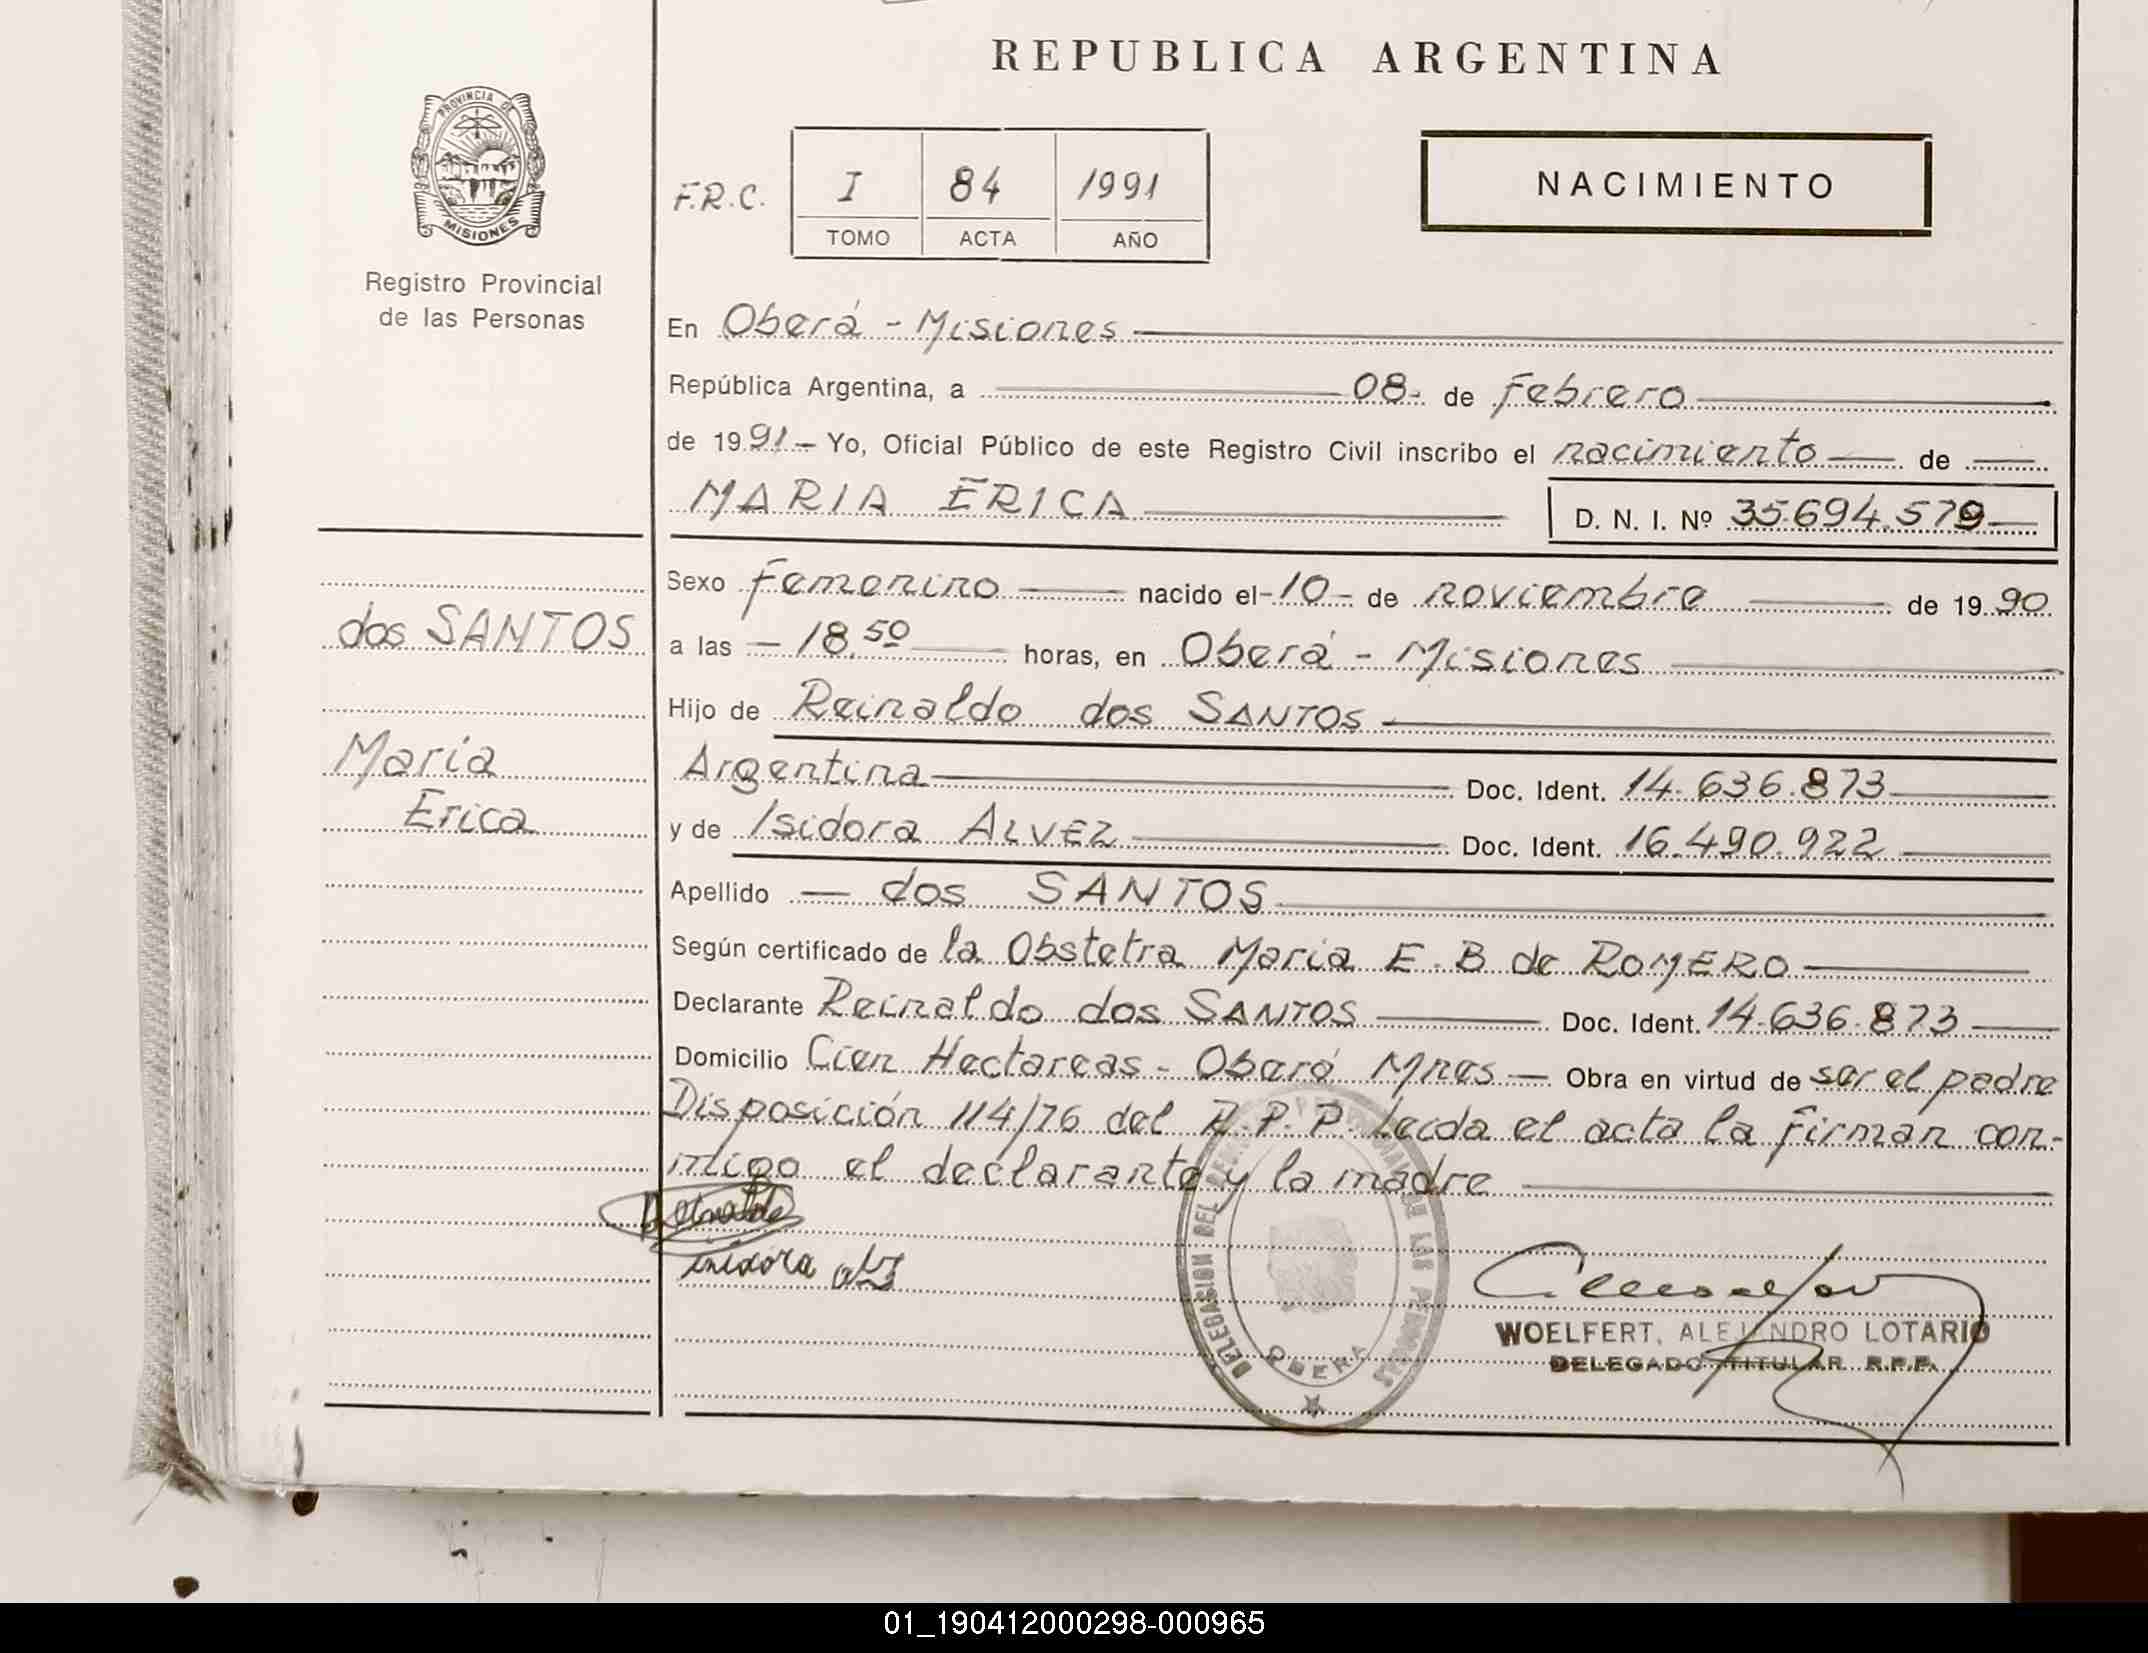 REPUBLICA ARGENTINA
PROVINCIA DE
MISIONES
Registro Provincial
de las Personas
F.R.C.
I 84 1991
TOMO ACTA AÑO
NACIMIENTO
En Oberá - Misiones
República Argentina, a 08- de Febrero
de 1991.- Yo, Oficial Público de este Registro Civil inscribo el nacimiento de
MARIA ERICA D. N. I. Nº 35.694.579
Sexo Femenino nacido el -10- de noviembre de 1990
a las - 18.50 horas, en Oberá - Misiones
Hijo de Reinaldo dos SANTOS
Argentina Doc. Ident. 14.636.873
y de Isidora ALVEZ Doc. Ident. 16.490.922
Apellido dos SANTOS
Según certificado de la Obstetra Maria E. B de ROMERO
Declarante Reinaldo dos SANTOS Doc. Ident. 14.636.873
Domicilio Cien Hectareas - Oberá Mnes - Obra en virtud de ser el padre
Disposición 114/76 del R.P.P. Leida el acta la firman con-
migo el declarante y la madre
dos SANTOS
Maria
Erica
DELEGASION DEL DE LAS PERSONAS
OBERA
WOELFERT, ALEJANDRO LOTARIO
DELEGADO TITULAR R.P.P.
01_190412000298-000965